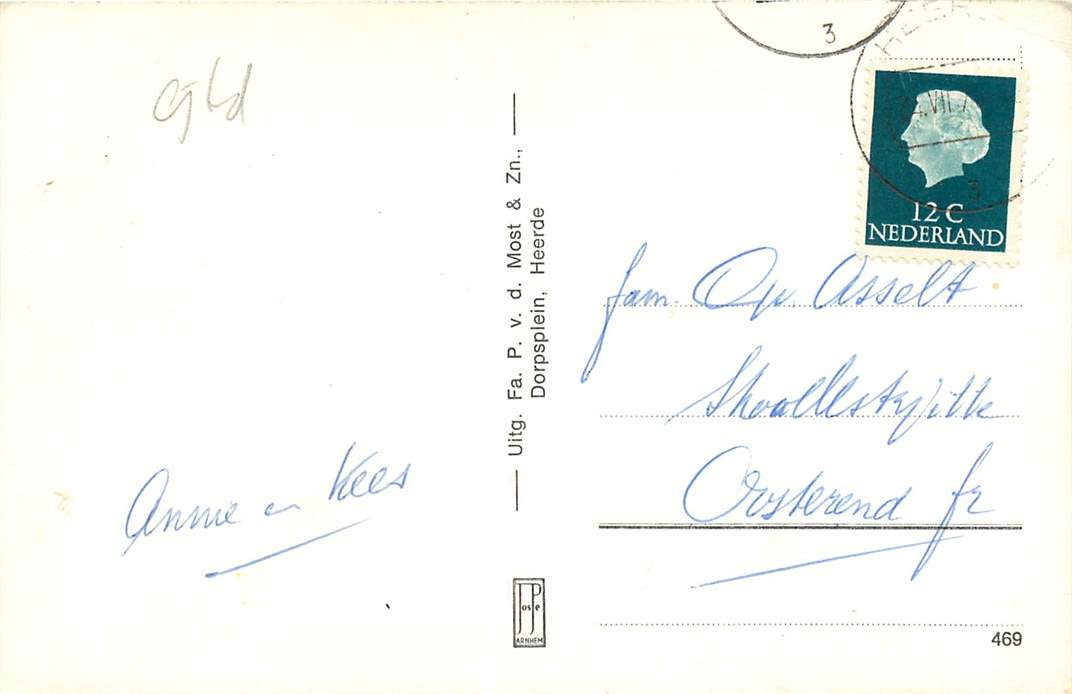 Gld
3
HEER
VII
3
12 C
NEDERLAND
Uitg. Fa. P. v. d. Most & Zn.,
Dorpsplein, Heerde
fam. Op. Asselt
Oosterend fr
Annie en Kees
Joste
ARNHEM
469